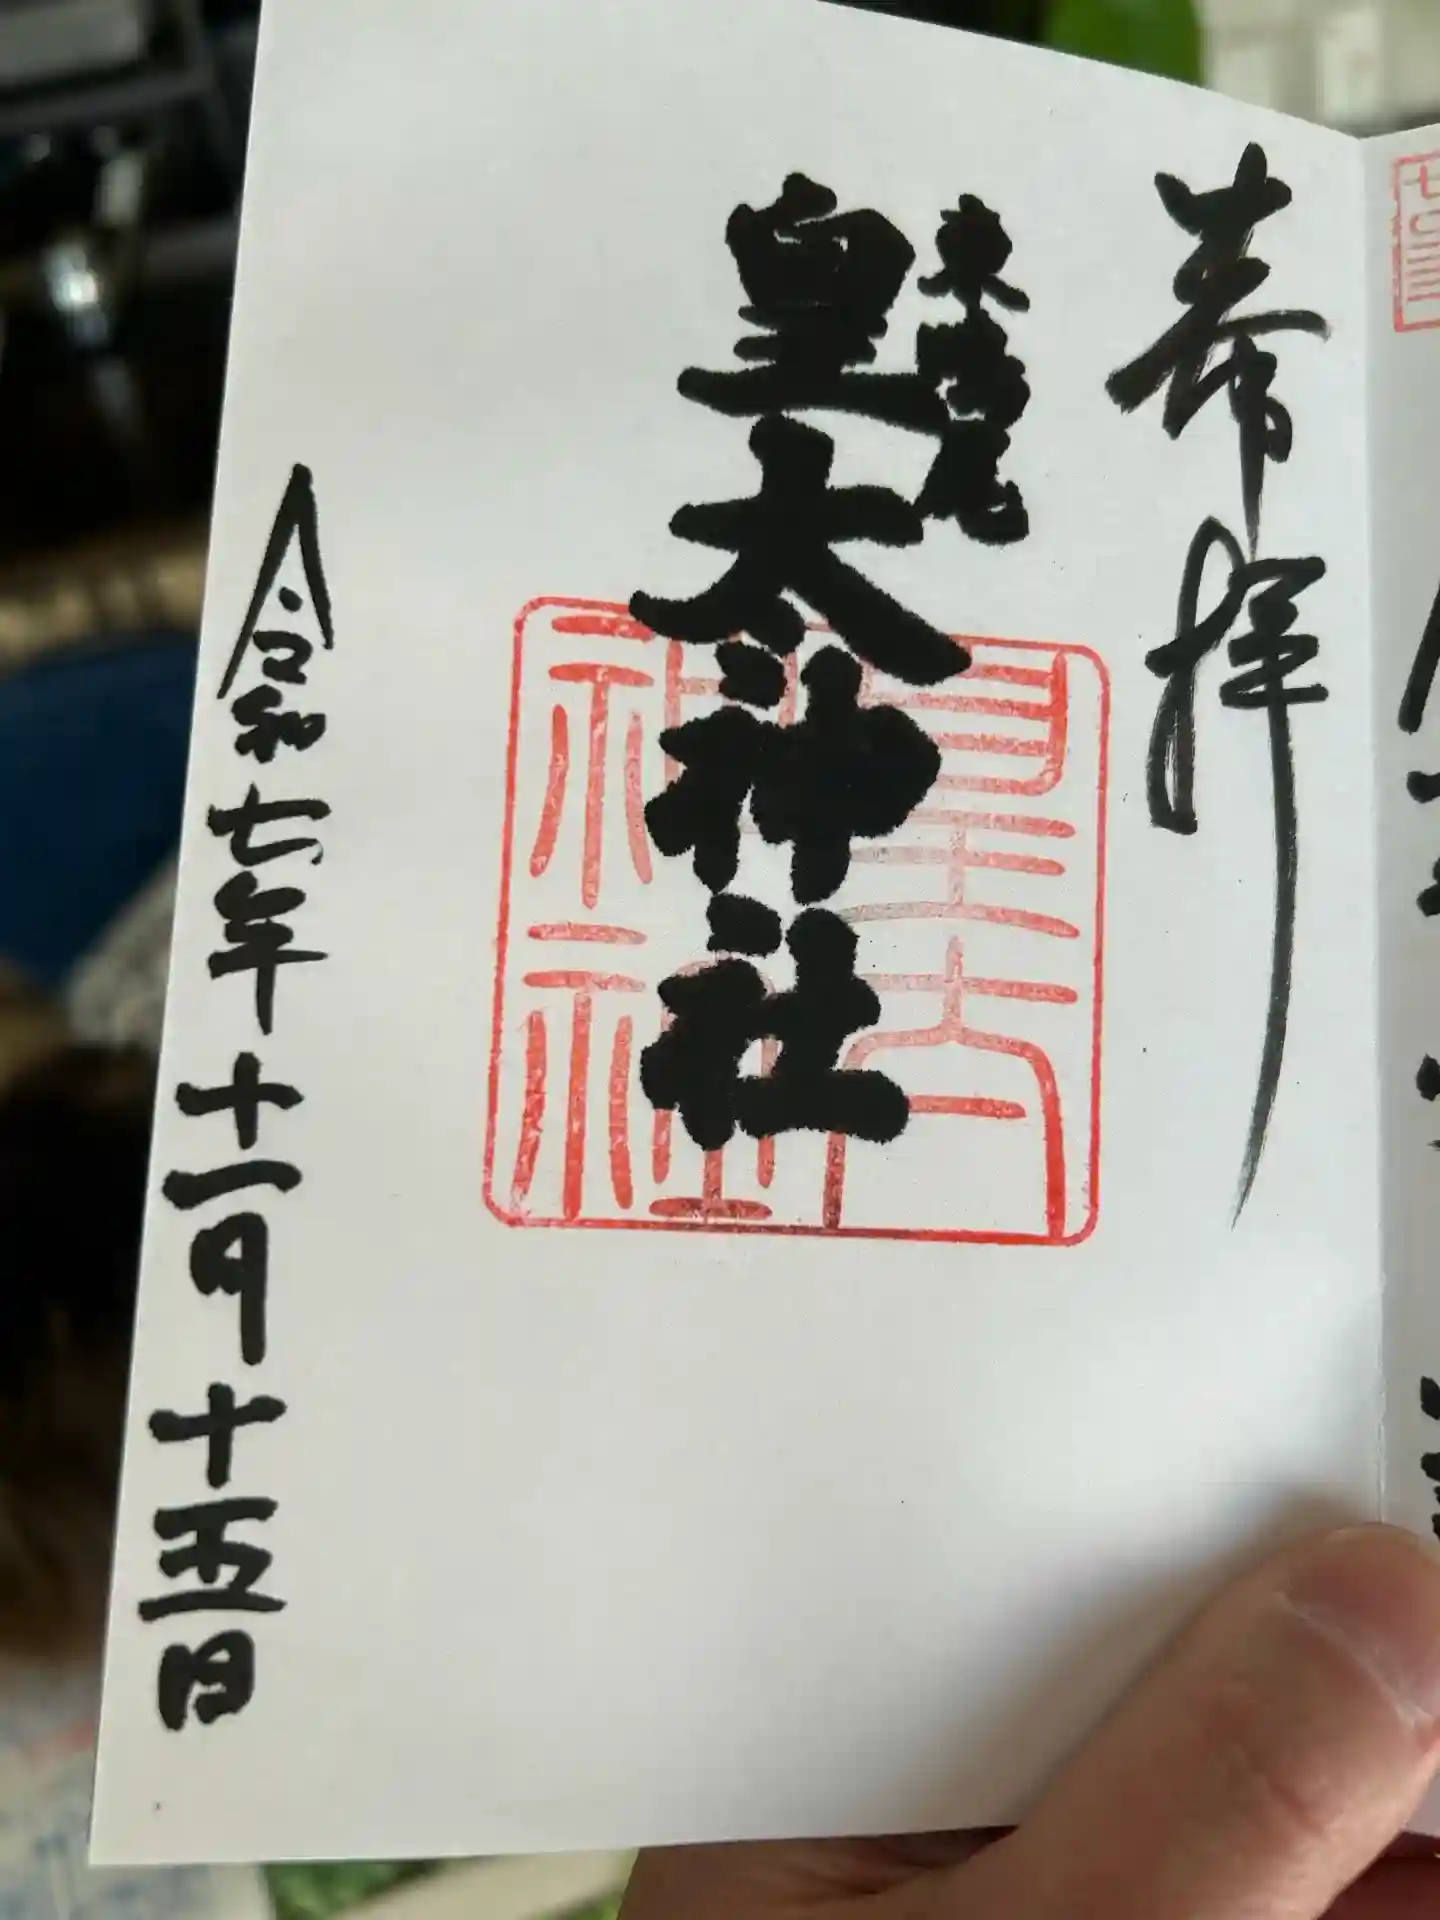 奉拝
東鳴尾
皇太神社
皇太神社
令和七年十一月十五日